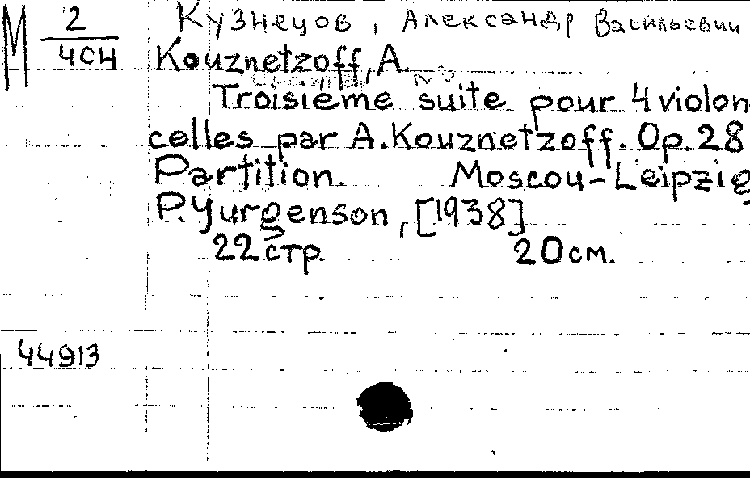 М 2/4СН
Кузнецов, Александр Васильевич
Kouznetzoff, A.
Troisième suite pour 4 violon
celles par A. Kouznetzoff. Op. 28
Partition. Moscou-Leipzig
P. Yurgenson, [1938]
22 стр. 20 см.
44913